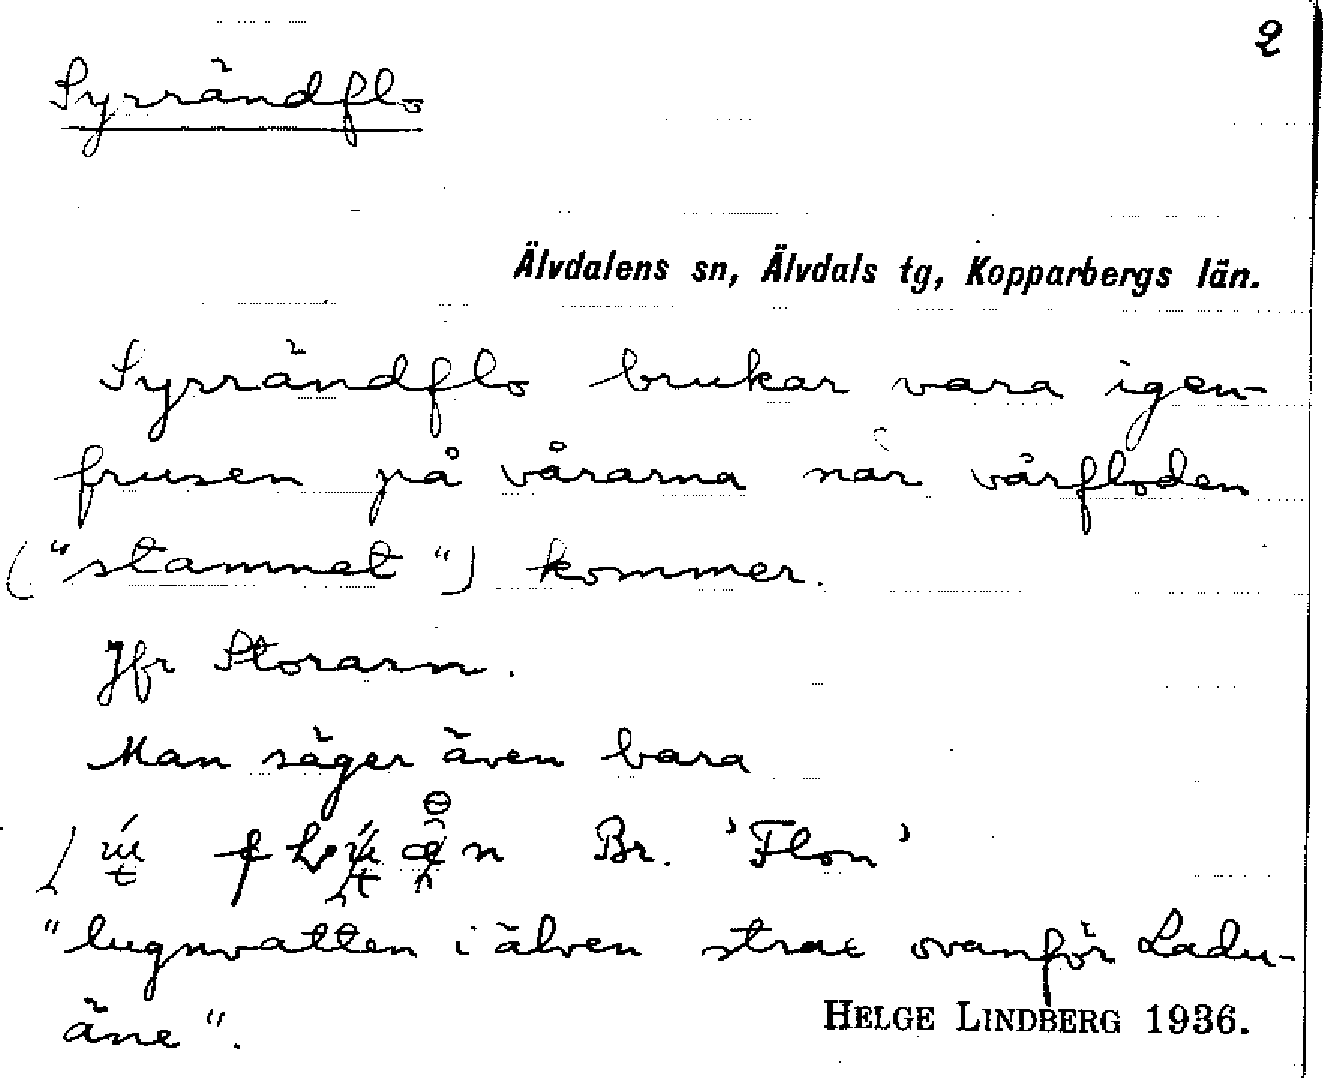 2
Syrrändflo
Älvdalens sn, Älvdals tg, Kopparbergs län.
Syrrändflo brukar vara igen-
frusen på vårarna när vårfloden
("stammet") kommer.
Jfr Storarn.
Man säger även bara
Br. 'Flon'
"lugnvatten i älven strax ovanför Ladu-
äne".
HELGE LINDBERG 1936.